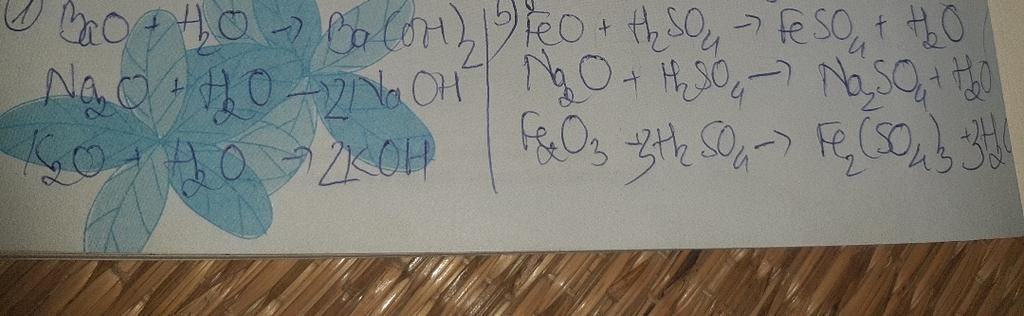 1) BaO + H₂O → Ba(OH)₂
Na₂O + H₂O → 2NaOH
K₂O + H₂O → 2KOH
5) FeO + H₂SO₄ → FeSO₄ + H₂O
Na₂O + H₂SO₄ → Na₂SO₄ + H₂O
Fe₂O₃ + 3H₂SO₄ → Fe₂(SO₄)₃ + 3H₂